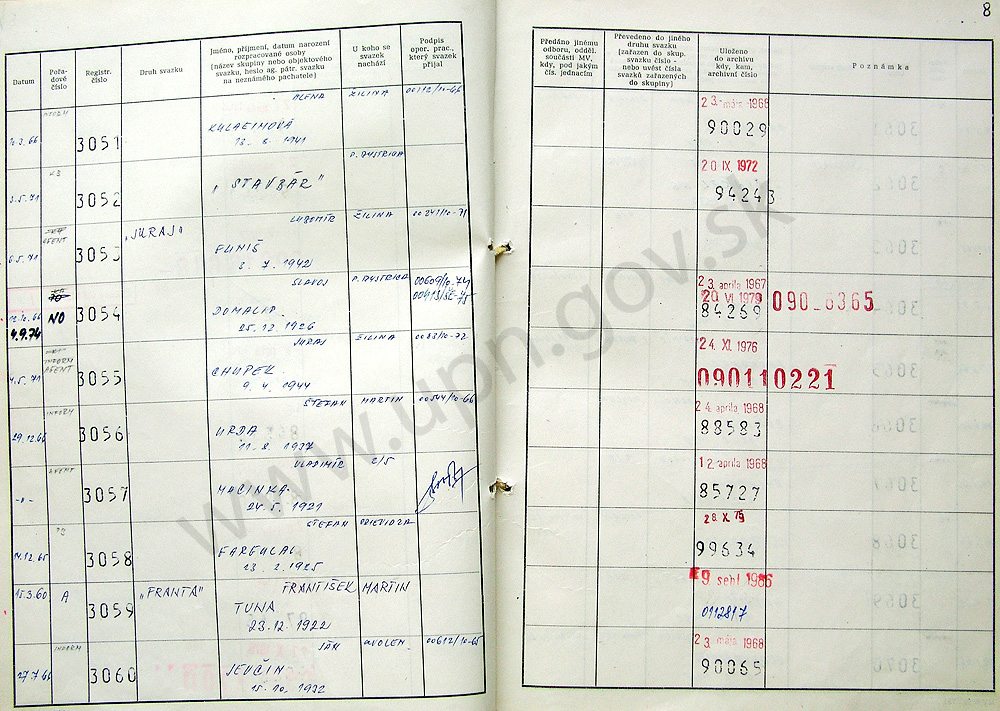 8
Datum
Pořa-
dové
číslo
Registr.
číslo
Druh svazku
Jméno, příjmení, datum narození
rozpracované osoby
(název skupiny nebo objektového
svazku, heslo ag. pátr. svazku
na neznámého pachatele)
U koho se
svazek
nachází
Podpis
oper. prac.,
který svazek
přijal
Předáno jinému
odboru, odděl.
součásti MV,
kdy, pod jakým
čís. jednacím
Převedeno do jiného
druhu svazku
(zařazen do skup.
svazku číslo -
nebo uvést čísla
svazků zařazených
do skupiny)
Uloženo
do archivu
kdy, kam,
archivní číslo
Poznámka
ALENA ŽILINA
3051
13. 8. 1941
23. mája 1968
90029
P. BYSTRICA
3.5.71 3052 "STAVBÁR"
20 IX. 1972
94243
ĽUBOMÍR ŽILINA 00241/10-71
AGENT
6.5.71 3053 "JURAJ" FUNIŠ
3. 7. 1942
SLAVOJ P. BYSTRICA 00609/10-74
4.9.74 NO 3054
25. 12. 1926
23. aprila 1967
20 VI 1979
84269 090-6365
JURAJ ŽILINA 0083/10-72
INFORM
AGENT
4.5.71 3055 CHUPEK
9. 4. 1944
24. XI. 1976
090110221
INFORM ŠTEFAN MARTIN 00544/10-66
29.12.65 3056 URDA
11. 8. 1937
24. aprila 1968
88583
AGENT VLADIMÍR
-"- 3057 MACINKA
24. 5. 1921
12. aprila 1968
85727
ŠTEFAN PRIEVIDZA
14.12.65 3058
13. 2. 1925
28. X. 75
99634
15.3.60 A 3059 "FRANTA" FRANTIŠEK MARTIN
TUNA
23. 12. 1922
9 sept 1986
0112817
INFORM JÁN ZVOLEN 00612/10-65
27.7.66 3060 JEVČIN
15. 10. 1932
23. mája 1968
90065
www.upn.gov.sk